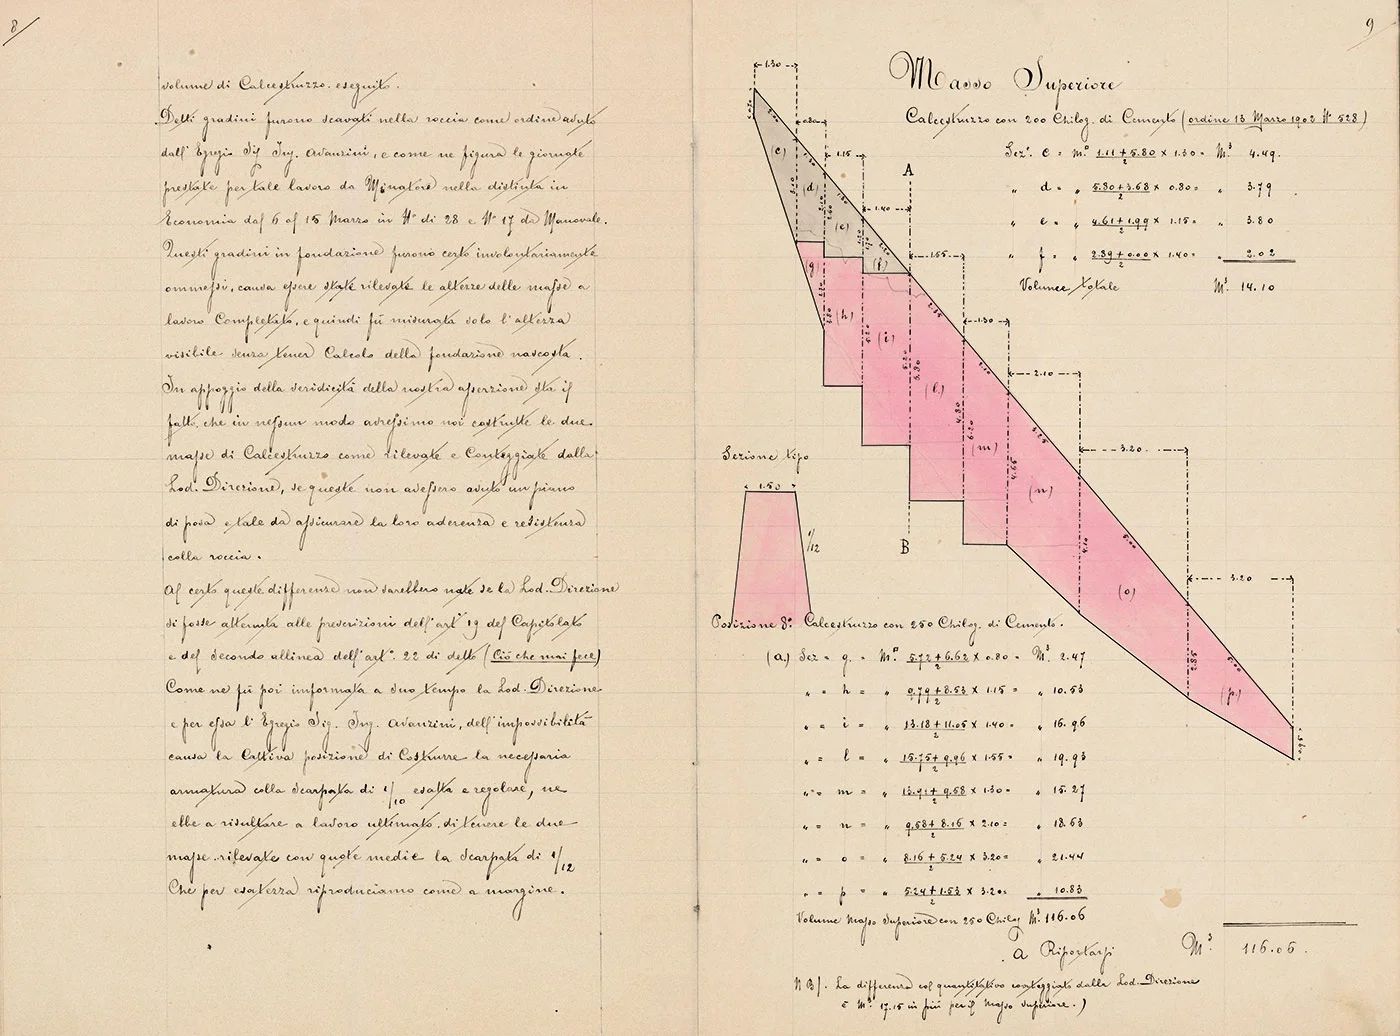 8
volume di Calcestruzzo eseguito.
Detti gradini furono scavati nella roccia come ordine avuto
dall' Egregio Sig. Ing. Avanzini, e come ne figura le giornate
prestate per tale lavoro da Minatore nella distinta in
Economia dal 6 al 15 Marzo in N° di 28 e N° 17 da Manovale.
Questi gradini in fondazione furono certo involontariamente
ommessi, causa essere state rilevate le altezze delle masse a
lavoro Completato, e quindi fù misurata solo l'altezza
visibile senza tener Calcolo della fondazione nascosta.
In appoggio della veridicità della nostra asserzione sta il
fatto, che in nessun modo avressimo noi costrutte le due
masse di Calcestruzzo come rilevate e Conteggiate dalla
Lod. Direzione, se queste non avessero avuto un piano
di posa e tale da assicurare la loro aderenza e resistenza
colla roccia.
Al certo queste differenze non sarebbero nate se la Lod. Direzione
si fosse attenuta alle prescrizioni dell'art° 19 del Capitolato
e del secondo allinea dell'art°. 22 di detto (Ciò che mai fece)
Come ne fù poi informata a suo tempo la Lod. Direzione
e per essa l'Egregio Sig. Ing. Avanzini, dell'impossibilità
causa la Cattiva posizione di Costrurre la necessaria
armatura colla scarpata di 1/10 esatta e regolare, ne
ebbe a risultare a lavoro ultimato, di tenere le due
masse rilevate con quote medie la scarpata di 1/12
Che per esatezza riproduciamo come a margine.
9
Masso Superiore
Calcestruzzo con 200 Chilog. di Cemento (ordine 13 Marzo 1902 N° 528)
Sez°. c = M.° 1.11+5.80/2 × 1.30 = M³. 4.49.
" d = " 5.80+3.68/2 × 0.80 = " 3.79
" e = " 4.61+1.99/2 × 1.15 = " 3.80
" f = " 2.89+0.00/2 × 1.40 = " 2.02
Volume Totale M³. 14.10
1.30
0.80
1.15
1.40
A
1.55
1.30
2.10
3.20
3.20
(c)
(d)
(e)
(f)
(g)
(h)
(i)
(l)
(m)
(n)
(o)
(p)
5.20
4.80
6.20
4.65
4.10
2.85
5.25
5.00
5.00
0.95
B
Sezione tipo
1.50
1/12
Posizione 8ª. Calcestruzzo con 250 Chilog. di Cemento.
(a) Sez = g. = M.° 5.72+6.62/2 × 0.80 = M³. 2.47
" = h = " 0.79+8.53/2 × 1.15 = " 10.53
" = i = " 13.18+11.05/2 × 1.40 = " 16.96
" = l = " 15.75+9.96/2 × 1.55 = " 19.93
" = m = " 13.91+9.58/2 × 1.30 = " 15.27
" = n = " 9.58+8.16/2 × 2.10 = " 18.63
" = o = " 8.16+5.24/2 × 3.20 = " 21.44
" = p = " 5.24+1.53/2 × 3.20 = " 10.83
Volume Masso Superiore con 250 Chilog M³. 116.06
a Riportarsi M³. 116.06.
NB/. La differenza col quantitativo conteggiato dalla Lod. Direzione
è M³. 17.15 in più per il Masso superiore.)